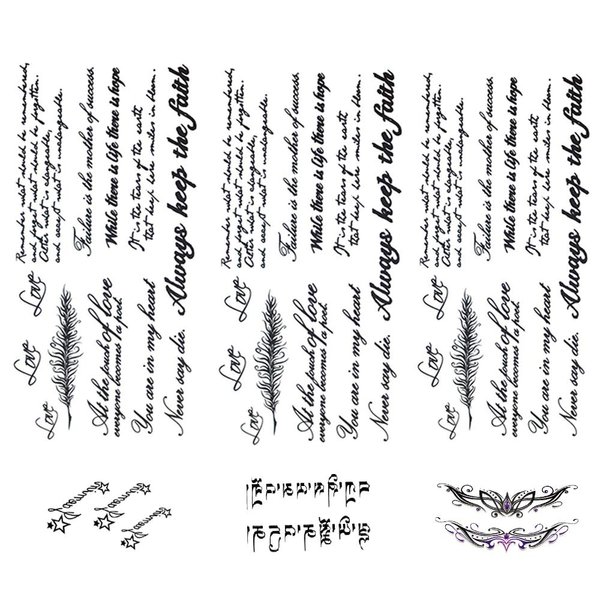 Love
Love
Love
Remember what should be remembered,
and forget what should be forgotten.
Alter what is changeable,
and accept what is unchangeable.
At the touch of love
everyone becomes a poet.
Failure is the mother of success.
While there is life there is hope
You are in my heart
It is the tears of the earth
that keep here smiles in bloom.
Never say die.
Always keep the faith
Love
Love
Love
Remember what should be remembered,
and forget what should be forgotten.
Alter what is changeable,
and accept what is unchangeable.
At the touch of love
everyone becomes a poet.
Failure is the mother of success.
While there is life there is hope
You are in my heart
It is the tears of the earth
that keep here smiles in bloom.
Never say die.
Always keep the faith
Love
Love
Love
Remember what should be remembered,
and forget what should be forgotten.
Alter what is changeable,
and accept what is unchangeable.
At the touch of love
everyone becomes a poet.
Failure is the mother of success.
While there is life there is hope
You are in my heart
It is the tears of the earth
that keep here smiles in bloom.
Never say die.
Always keep the faith